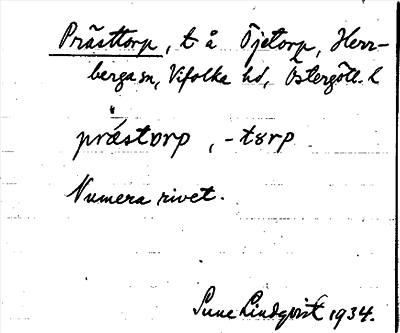 Prästtorp, t å Öjetorp, Herr-
berga sn, Vifolka hd, Östergötl. l
præ̀stɷrp, -tɷrp
Numera rivet.
Sune Lindqvist 1934.